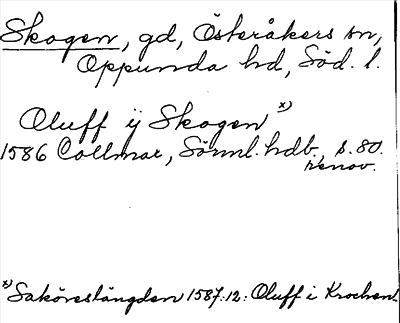 Skogen, gd, Österåkers sn,
Oppunda hd, Söd. l.
Oluff ij Skogen x)
1586 Collmar, Sörml. hdb., s. 80.
renov.
x) Saköreslängden 1587:12: Oluff i Krochen.